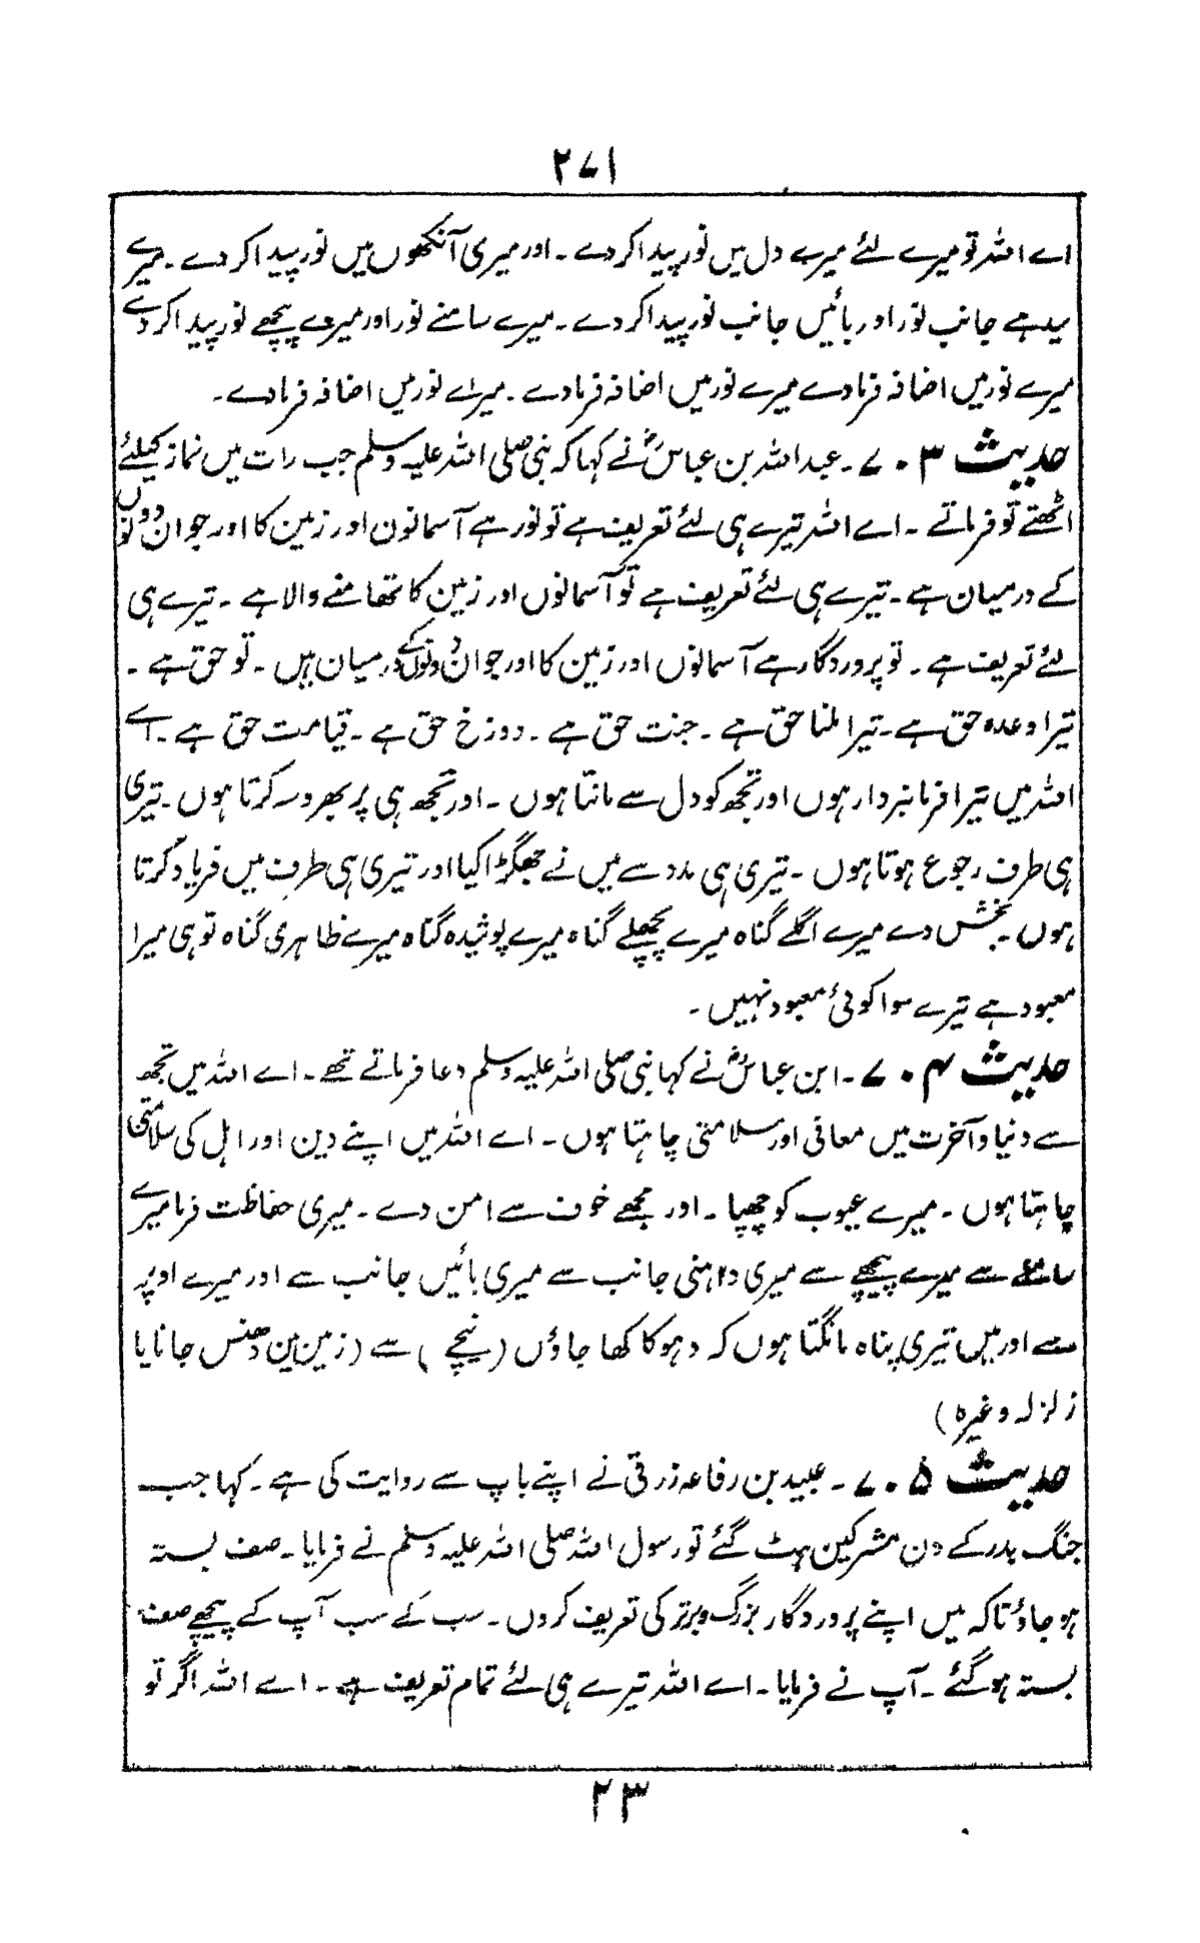 ۲۷۱
اے اللہ تو میرے لئے میرے دل میں نور پیدا کر دے۔ اور میری آنکھوں میں نور پیدا کر دے۔ میرے
سیدہے جانب نور اور بائیں جانب نور پیدا کر دے۔ میرے سامنے نور اور میرے پیچھے نور پیدا کر دے
میرے نور میں اضافہ فرما دے میرے نور میں اضافہ فرما دے۔ میرے نور میں اضافہ فرما دے۔
حدیث ۷۰۳۔ عبد اللہ بن عباسؓ نے کہا کہ نبی صلی اللہ علیہ وسلم جب رات میں نماز کیلئے
اٹھتے تو فرماتے ۔ اے اللہ تیرے ہی لئے تعریف ہے تو نور ہے آسمانون اور زمین کا اور جو ان دونوں
کے درمیان ہے۔ تیرے ہی لئے تعریف ہے تو آسمانوں اور زمین کا تھامنے والا ہے ۔ تیرے ہی
لئے تعریف ہے ۔ تو پروردگار ہے آسمانوں اور زمین کا اور جو ان دونوں کے درمیان ہیں ۔ تو حق ہے ۔
تیرا وعدہ حق ہے۔ تیرا ملنا حق ہے ۔ جنت حق ہے ۔ دوزخ حق ہے ۔ قیامت حق ہے ۔ اے
اللہ میں تیرا فرمانبردار ہوں اور تجھ کو دل سے مانتا ہوں ۔ اور تجھ ہی پر بھروسہ کرتا ہوں ۔ تیری
ہی طرف رجوع ہوتا ہوں ۔ تیری ہی مدد سے میں نے جھگڑا کیا اور تیری ہی طرف میں فریاد کرتا
ہوں ۔ بخش دے میرے اگلے گناہ میرے پچھلے گناہ میرے پوشیدہ گناہ میرے ظاہری گناہ تو ہی میرا
معبود ہے تیرے سوا کوئی معبود نہیں ۔
حدیث ۷۰۴۔ ابن عباسؓ نے کہا نبی صلی اللہ علیہ وسلم دعا فرماتے تھے ۔ اے اللہ میں تجھ
سے دنیا و آخرت میں معافی اور سلامتی چاہتا ہوں ۔ اے اللہ میں اپنے دین اور اہل کی سلامتی
چاہتا ہوں ۔ میرے عیوب کو چھپا ۔ اور مجھے خوف سے امن دے ۔ میری حفاظت فرما میرے
سامنے سے میرے پیچھے سے میری داہنی جانب سے میری بائیں جانب سے اور میرے اوپر
سے اور میں تیری پناہ مانگتا ہوں کہ دہوکا کھا جاؤں (نیچے) سے (زمین میں دھنس جانا یا
زلزلہ وغیرہ)
حدیث ۷۰۵۔ عبید بن رفاعہ زرقی نے اپنے باپ سے روایت کی ہے ۔ کہا جب
جنگ بدر کے دن مشرکین ہٹ گئے تو رسول اللہ صلی اللہ علیہ وسلم نے فرمایا ۔ صف بستہ
ہو جاؤ تاکہ میں اپنے پروردگار بزرگ و برتر کی تعریف کروں ۔ سب کے سب آپ کے پیچھے صف
بستہ ہو گئے ۔ آپ نے فرمایا ۔ اے اللہ تیرے ہی لئے تمام تعریف ہے ۔ اے اللہ اگر تو
۲۳